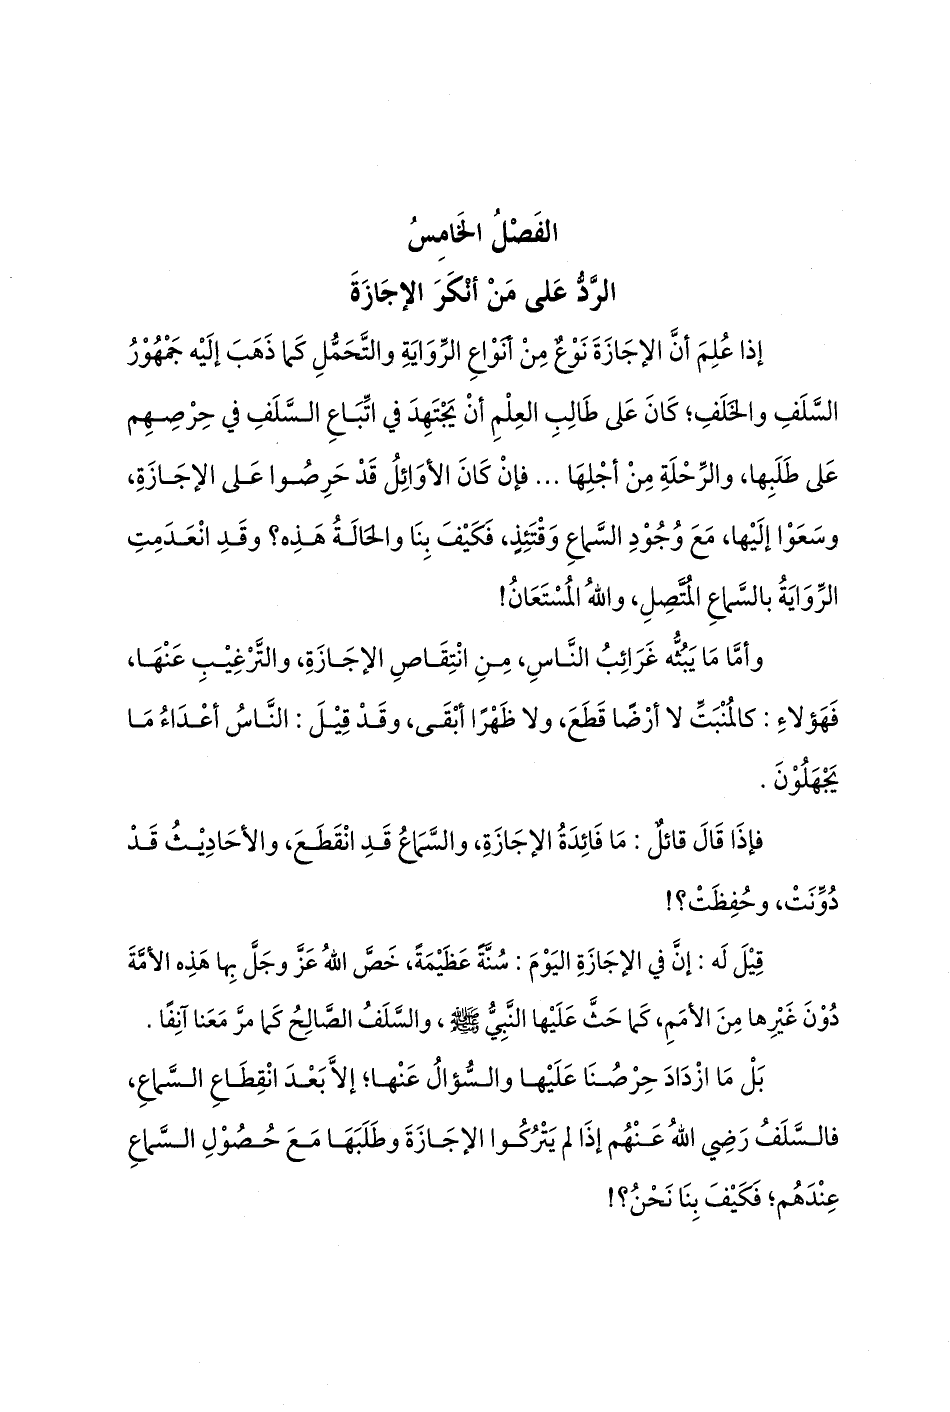 الفَصْلُ الخَامِسُ
الرَّدُّ عَلى مَنْ أنْكَرَ الإجَازَةَ
إذا عُلِمَ أنَّ الإجَازَةَ نَوْعٌ مِنْ أنْوَاعِ الرِّوَايَةِ والتَّحَمُّلِ كَمَا ذَهَبَ إلَيْه جَمْهُوْرُ
السَّلَفِ والخَلَفِ؛ كَانَ عَلى طَالِبِ العِلْمِ أنْ يَجْتَهِدَ في اتِّبَاعِ السَّلَفِ في حِرْصِهِم
عَلى طَلَبِها، والرِّحْلَةِ مِنْ أجْلِهَا ... فإنْ كَانَ الأوَائِلُ قَدْ حَرِصُوا عَلى الإجَازَةِ،
وسَعَوْا إلَيْها، مَعَ وُجُوْدِ السَّماعِ وَقْتَئِذٍ، فَكَيْفَ بِنَا والحَالَةُ هَذِه؟ وقَدِ انْعَدَمِتِ
الرِّوَايَةُ بالسَّماعِ المُتَّصِلِ، واللهُ المُسْتَعَانُ!
وأمَّا مَا يَبُثُّه غَرَائِبُ النَّاسِ، مِنِ انْتِقَاصِ الإجَازَةِ، والتَّرْغِيْبِ عَنْهَا،
فَهَؤلاءِ : كالمُنْبَتِّ لا أرْضًا قَطَعَ، ولا ظَهْرًا أبْقَى، وقَدْ قِيْلَ : النَّاسُ أعْدَاءُ مَا
يَجْهَلُوْنَ .
فإذَا قَالَ قائلٌ : مَا فَائِدَةُ الإجَازَةِ، والسَّمَاعُ قَدِ انْقَطَعَ، والأحَادِيْثُ قَدْ
دُوِّنَتْ، وحُفِظَتْ؟!
قِيْلَ لَه : إنَّ في الإجَازَةِ اليَوْمَ : سُنَّةً عَظِيْمَةً، خَصَّ اللهُ عَزَّ وجَلَّ بِها هَذِه الأمَّةَ
دُوْنَ غَيْرِها مِنَ الأمَمِ، كَمَا حَثَّ عَلَيْها النَّبِيُّ ﷺ ، والسَّلَفُ الصَّالِحُ كَمَا مرَّ مَعَنا آنِفًا .
بَلْ مَا ازْدَادَ حِرْصُنَا عَلَيْها والسُّؤالُ عَنْها؛ إلاَّ بَعْدَ انْقِطَاعِ السَّماعِ،
فالسَّلَفُ رَضِي اللهُ عَنْهُم إذَا لم يَتْرُكُوا الإجَازَةَ وطَلَبَهَا مَعَ حُصُوْلِ السَّماعِ
عِنْدَهُم؛ فَكَيْفَ بِنَا نَحْنُ؟!